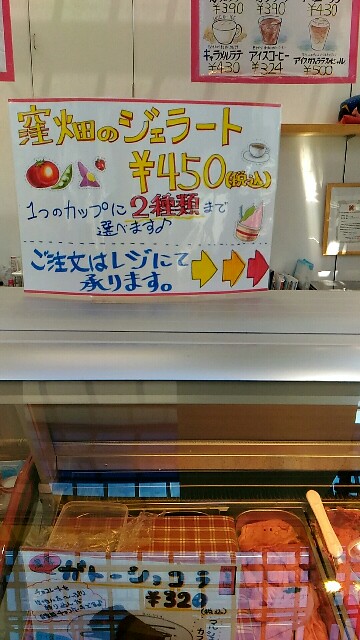 ¥390 ¥390 ¥430
キャラメルラテ アイスコーヒー
¥430 ¥324 ¥500
窪畑のジェラート
¥450(税込)
1つのカップに2種類まで
選べます♪
ご注文はレジにて
承ります。
ガトーショコラ
¥320
(税込)